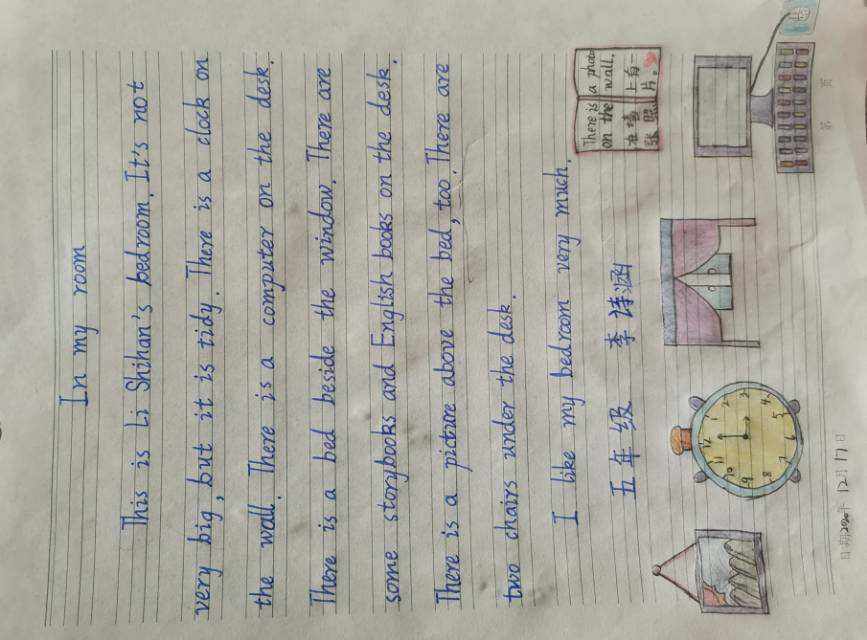 In my room
This is Li Shihan's bedroom. It's not
very big, but it is tidy. There is a clock on
the wall. There is a computer on the desk.
There is a bed beside the window. There are
some storybooks and English books on the desk.
There is a picture above the bed, too. There are
two chairs under the desk.
I like my bedroom very much.
五年级 李诗涵
There is a photo
on the wall.
在墙上有一
张照片。
12 1 2 3 4 5 6 7 8 9 10 11
第 页
日期 2020年 12月 17日